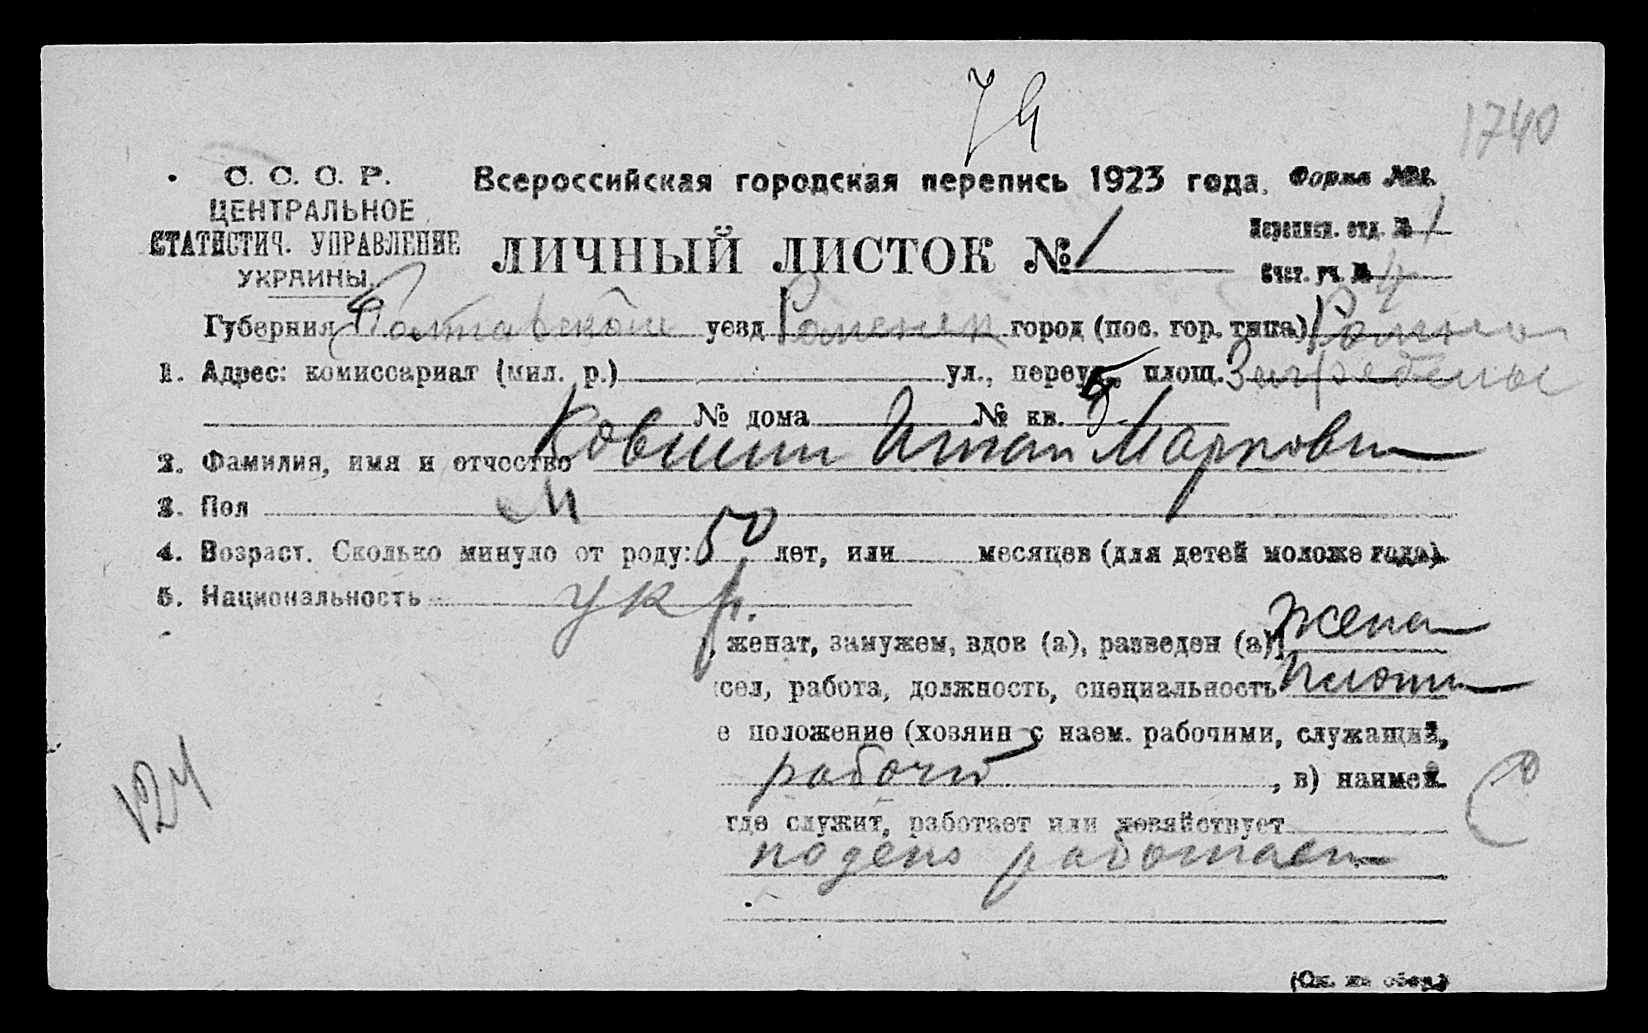 74
1740
С. С. С. Р.
ЦЕНТРАЛЬНОЕ
СТАТИСТИЧ. УПРАВЛЕНИЕ
УКРАИНЫ.
Всероссийская городская перепись 1923 года.
Форма №
ЛИЧНЫЙ ЛИСТОК № 1
Переписн. отд. № 1
Счет. уч. № 4
Губерния Полтавской уезд Роменск город (пос. гор. типа)
1. Адрес: комиссариат (мил. р.) ул., переул., площ.
№ дома № кв.
2. Фамилия, имя и отчество Ковшин Игнат Маркович
3. Пол М
4. Возраст. Сколько минуло от роду: 50 лет, или месяцев (для детей моложе года)
5. Национальность укр.
, женат, замужем, вдов (а), разведен (а)
сел, работа, должность, специальность
е положение (хозяин с наем. рабочими, служащий,
рабочий , в) наимен.
где служит, работает или хозяйствует
поденно работает
124
(См. на обор.)